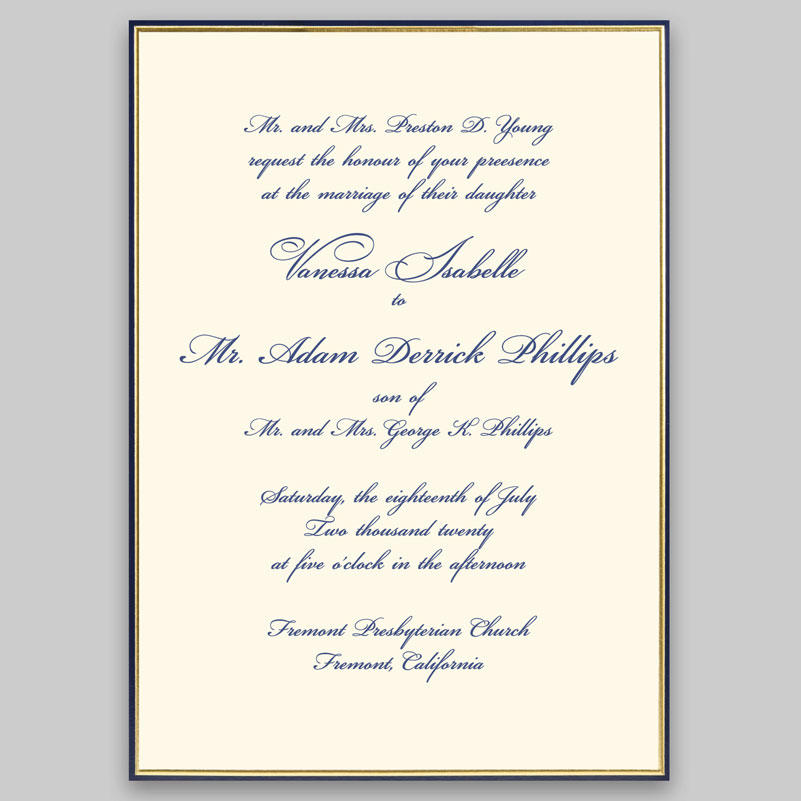 Mr. and Mrs. Preston D. Young
request the honour of your preesence
at the marriage of their daughter
Vanessa Isabelle
to
Mr. Adam Derrick Phillips
son of
Mr. and Mrs. George K. Phillips
Saturday, the eighteenth of July
Two thousand twenty
at five o'clock in the afternoon
Fremont Presbyterian Church
Fremont, California